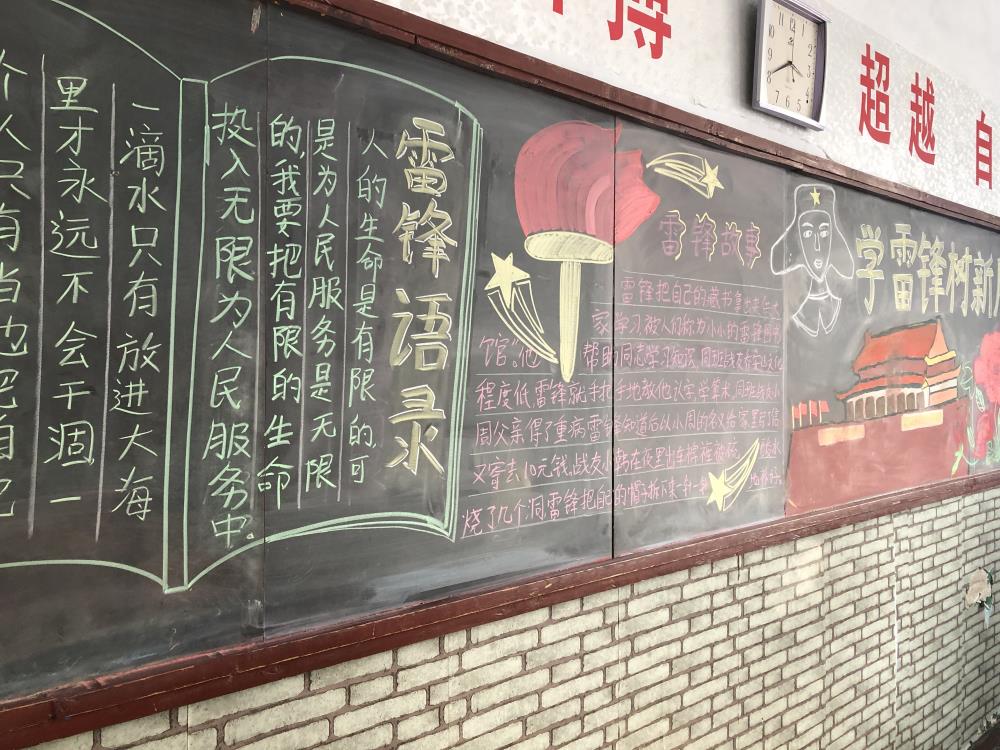 超越 自
雷锋语录
人的生命是有限的,可
是为人民服务是无限
的,我要把有限的生命
投入无限为人民服务中。
一滴水只有放进大海
里才永远不会干涸,一
个人只有当他把自己
雷锋故事
雷锋把自己的藏书拿出来给大
家学习,被人们称为小小的雷锋图书
馆"。他 帮助同志学习知识。同班战友乔安山文化
程度低雷锋就手把手地教他认字,学算术,同班战友小
周父亲得了重病雷锋知道后以小周的名义给家里写了信
又寄去10元钱,战友小韩在夜里出车棉裤被硫酸水
烧了几个洞,雷锋把自己的帽子拆下来一针一针地补好。
学雷锋树新